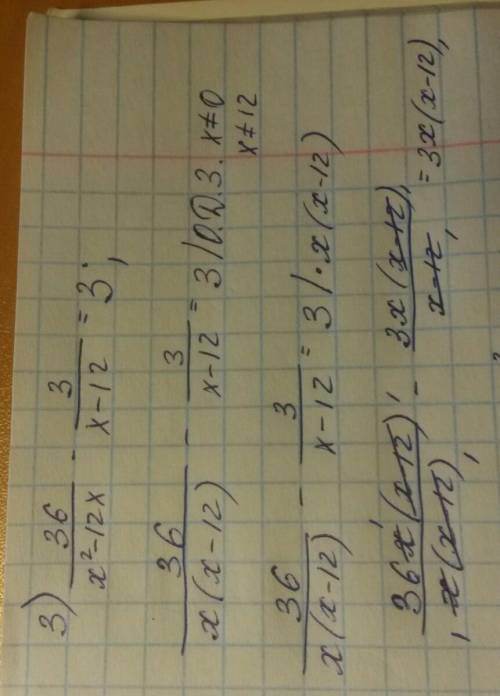 3) 36/(x²-12x) - 3/(x-12) = 3;
36/(x(x-12)) - 3/(x-12) = 3 | О.D.З. x≠0
x≠12
36/(x(x-12)) - 3/(x-12) = 3 | · x(x-12)
36x(x-12)/(x(x-12)) - 3x(x-12)/(x-12) = 3x(x-12),